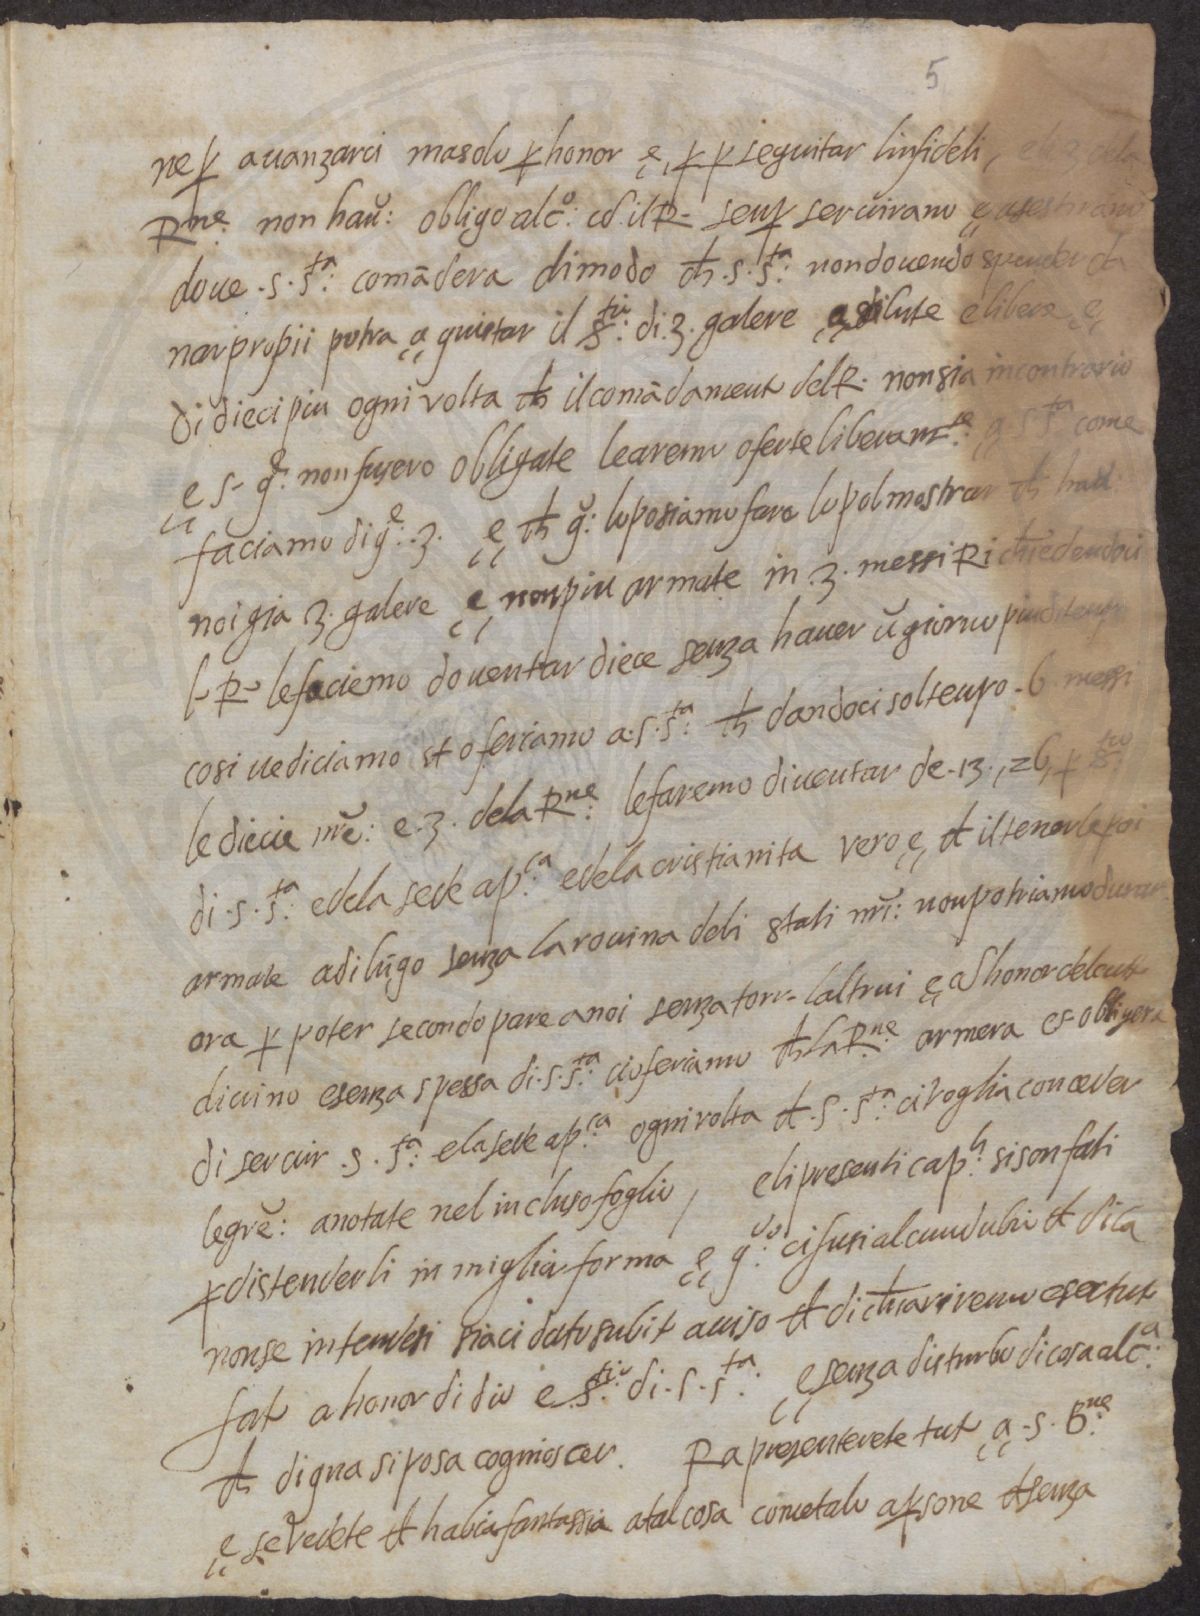 5
ne ꝑ auanzarci masolo ꝑ honor e, ꝑ ꝑseguitar linfideli,
Rne: non hau: obligo alco: cō il R- semꝑ seruirano e
doue .S. Sta: comādera dimodo ch .S. Sta: non douendo spender
nar propii potra a quistar il stu: di .3. galere sutile e libere e
di dieci piu ogni volta ch il comādament del R. non sia in contrario
e s- qe: non fusero obligate learemo oferte liberamte: a S Sta come
faciamo di qe: .3. e ch qu: lo posiamo fare lo pol mostrar ch hau:
noi gia 3. galere e non piu armate in .3. messi Richiedendoci
l- R- le faciemo doventar diece senza haver ū giorno piu di tempo
cosi ve diciamo et oferiamo a .S. Sta: ch dandoci sol tempo .6 messi
le diecie nre: e .3. dela Rne: le faremo diuentar de .13., 26, ꝑ stio
di .S. Sta: e dela sede apca: e dela cristianita vero e, ch il tenerle poi
armate adilūgo senza la rouina deli stati nri: non potriamo durar
ora ꝑ poter secondo pare a noi senza torr- laltrui e al honor del cult
diuino e senza spessa di .S. Sta: ci oferiamo ch la Rne: armera et obligera
di seruir .S. Sta: e la sede apca: ogni volta ch .S. Sta: ci voglia conceder
le gre: anotate nel incluso foglio, e li presenti caph: si son fati
ꝑ distenderli in miglior forma e qdo: ci fusi alcun dubio ch di la
non se intendesi siaci dato subit auiso ch dichiariremo e sera tut
fat a honor di dio e stio: di .S. Sta: e senza disturbo di cosa alca:
ch digna si posa cognoscer. Rapresenterete tut a .S. Bne:
e se vedete ch habia fantassia a tal cosa cometalo a ꝑsone ch senza